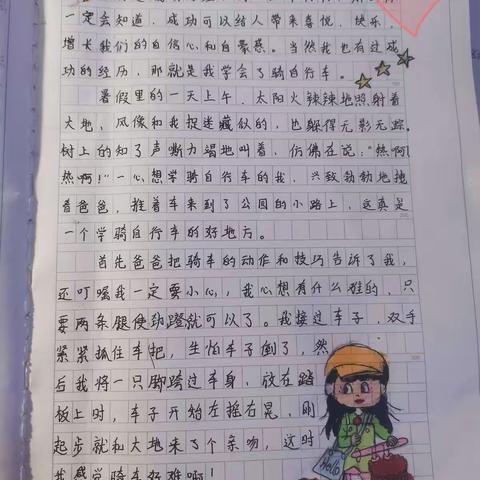 一定会知道，成功可以给人带来喜悦、快乐，
增长我们的自信心和自豪感。当然我也有过成
功的经历，那就是我学会了骑自行车。
暑假里的一天上午，太阳火辣辣地照射着
大地，风像和我捉迷藏似的，也躲得无影无踪。
树上的知了声嘶力竭地叫着，仿佛在说："热啊
热啊！"一心想学骑自行车的我，兴致勃勃地拽
着爸爸，推着车来到了公园的小路上，这真是
一个学骑自行车的好地方。
首先爸爸把骑车的动作和技巧告诉了我，
还叮嘱我一定要小心，我心想有什么难的，只
要两条腿使劲蹬就可以了。我接过车子，双手
紧紧抓住车把，生怕车子倒了，然
后我将一只脚跨过车身，放在踏
板上时，车子开始左摇右晃，刚
起步就和大地来了个亲吻，这时
我感觉骑车好难啊！
Hello